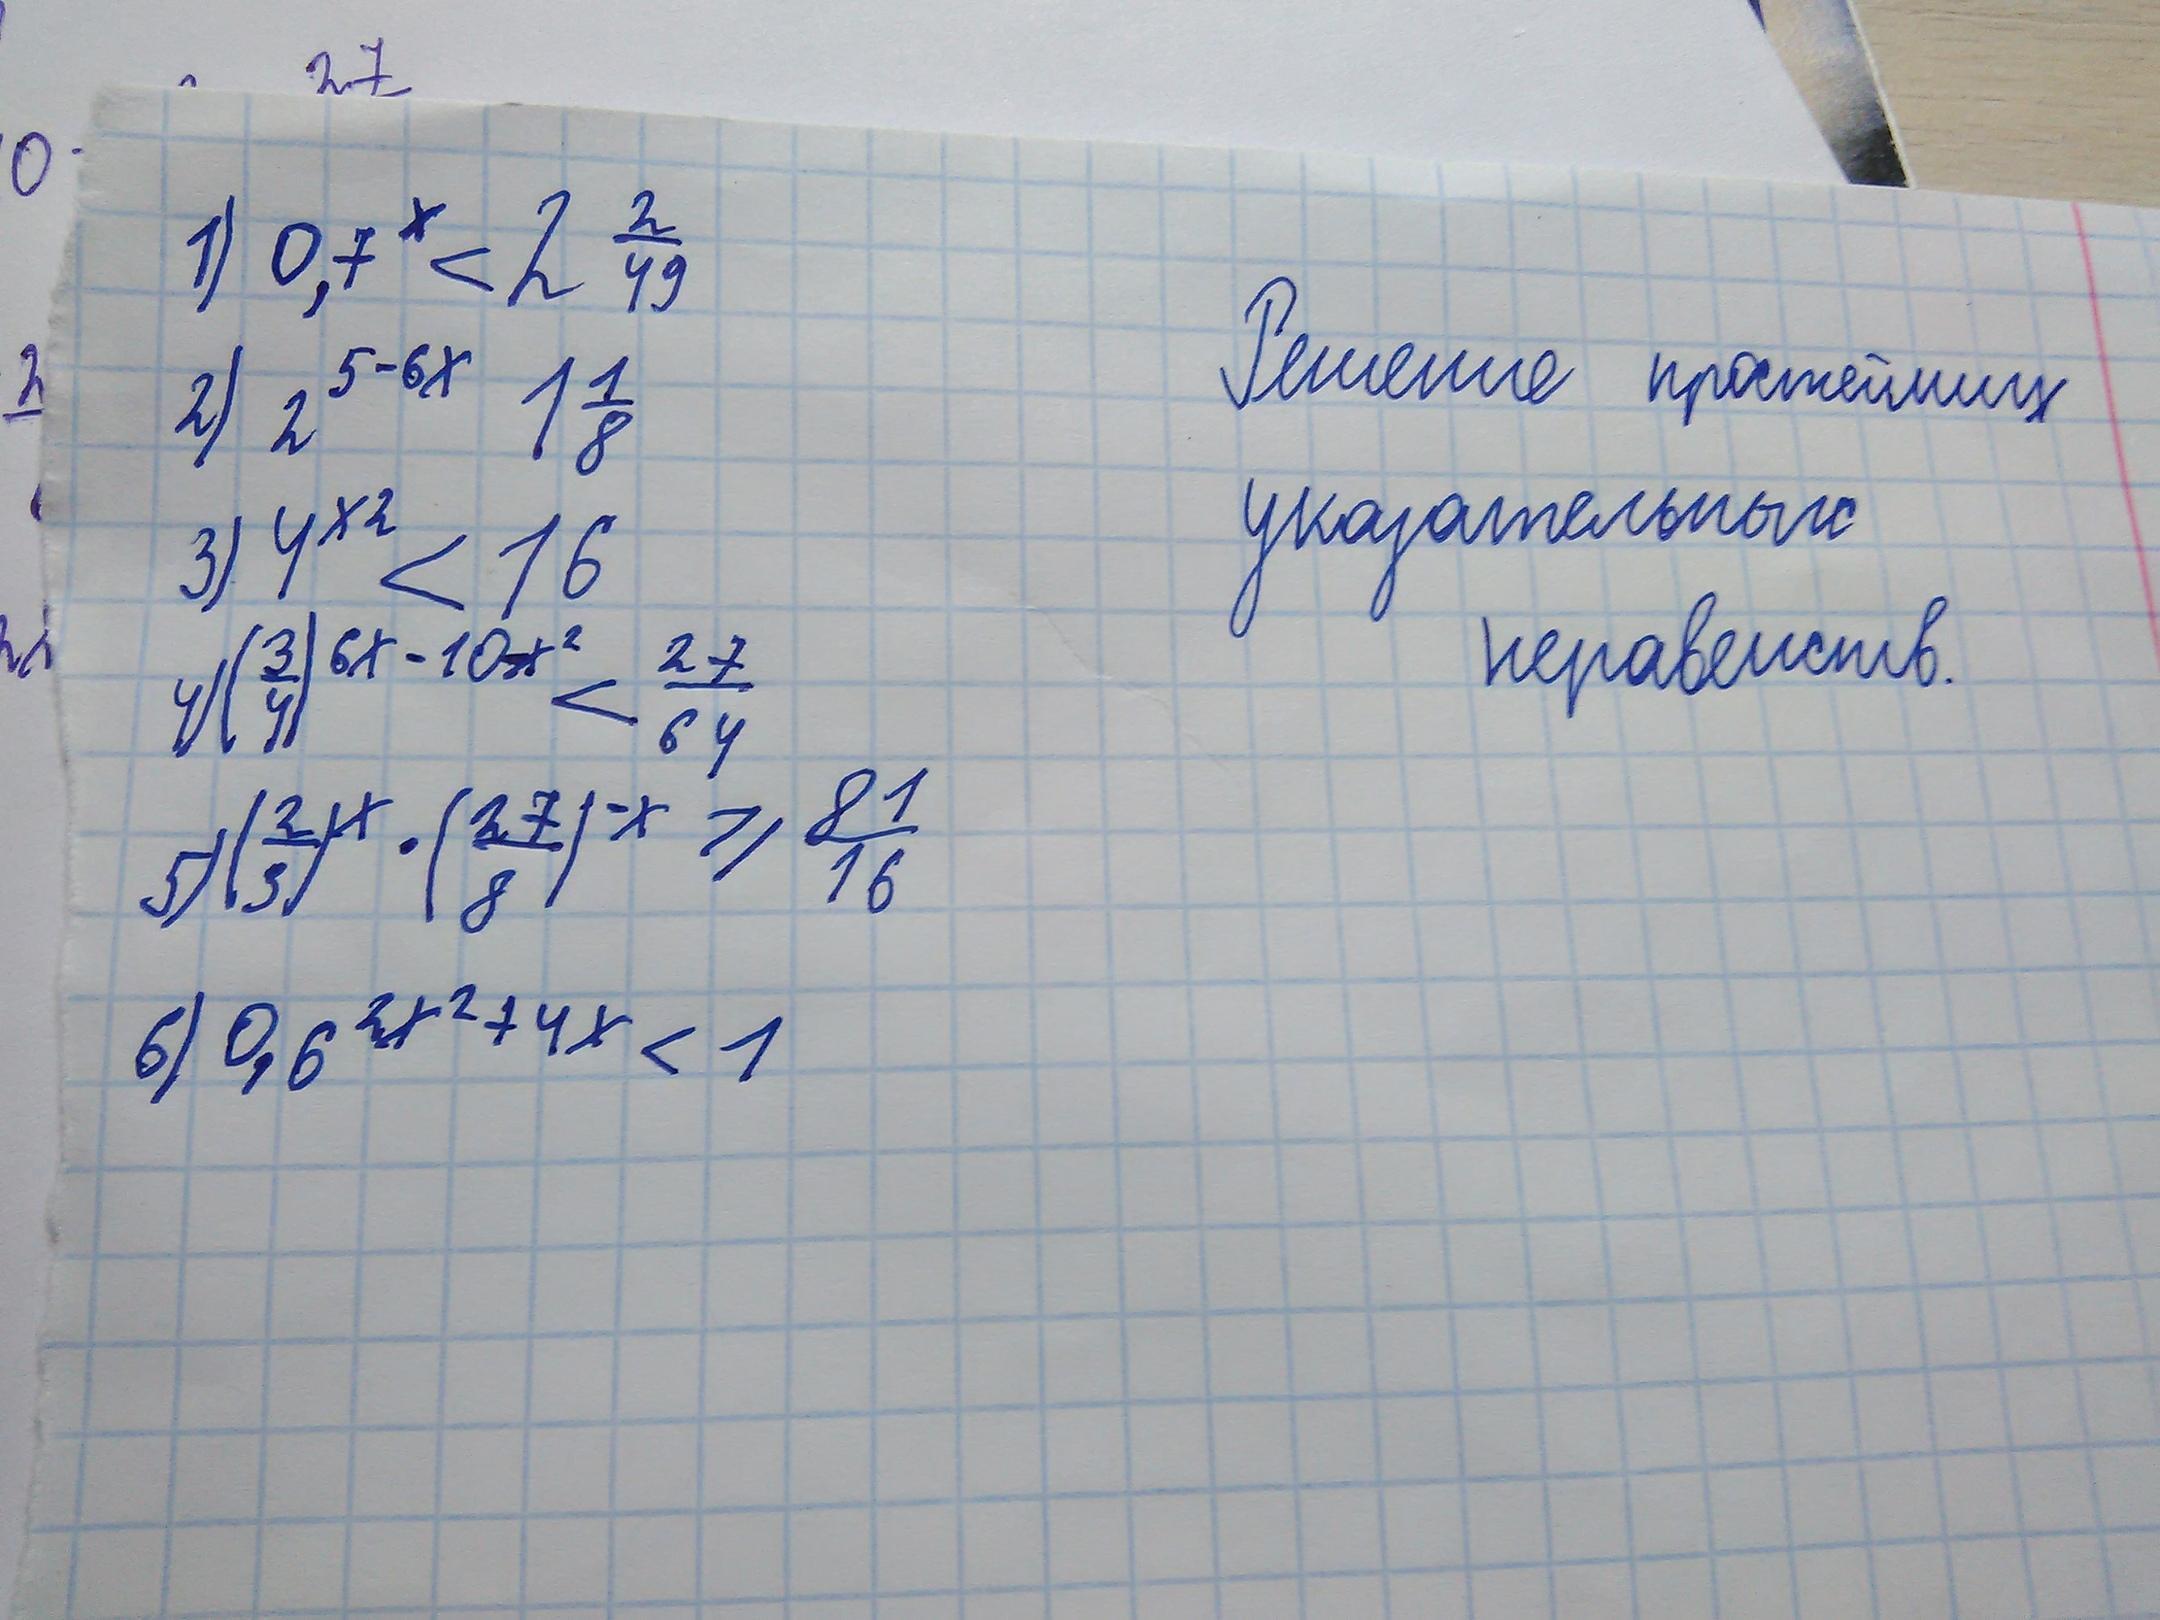 27
0
1) 0,7^x < 2 2/49
2) 2^(5-6x) 1 1/8
3) 4^(x2) < 16
4) (3/4)^(6x-10-x²) < 27/64
5) (2/3)^x · (27/8)^(-x) ⩾ 81/16
6) 0,6^(2x²+4x) < 1
Решение простейших
указательных
неравенств.